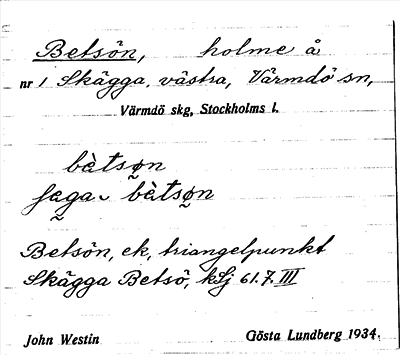 Betsön, holme å
nr 1 Skägga, västra, Värmdö sn,
Värmdö skg, Stockholms l.
bètsøn
bètsøn
Betsön, ek, triangelpunkt
Skägga Betsö, 61.7. III
John Westin Gösta Lundberg 1934.